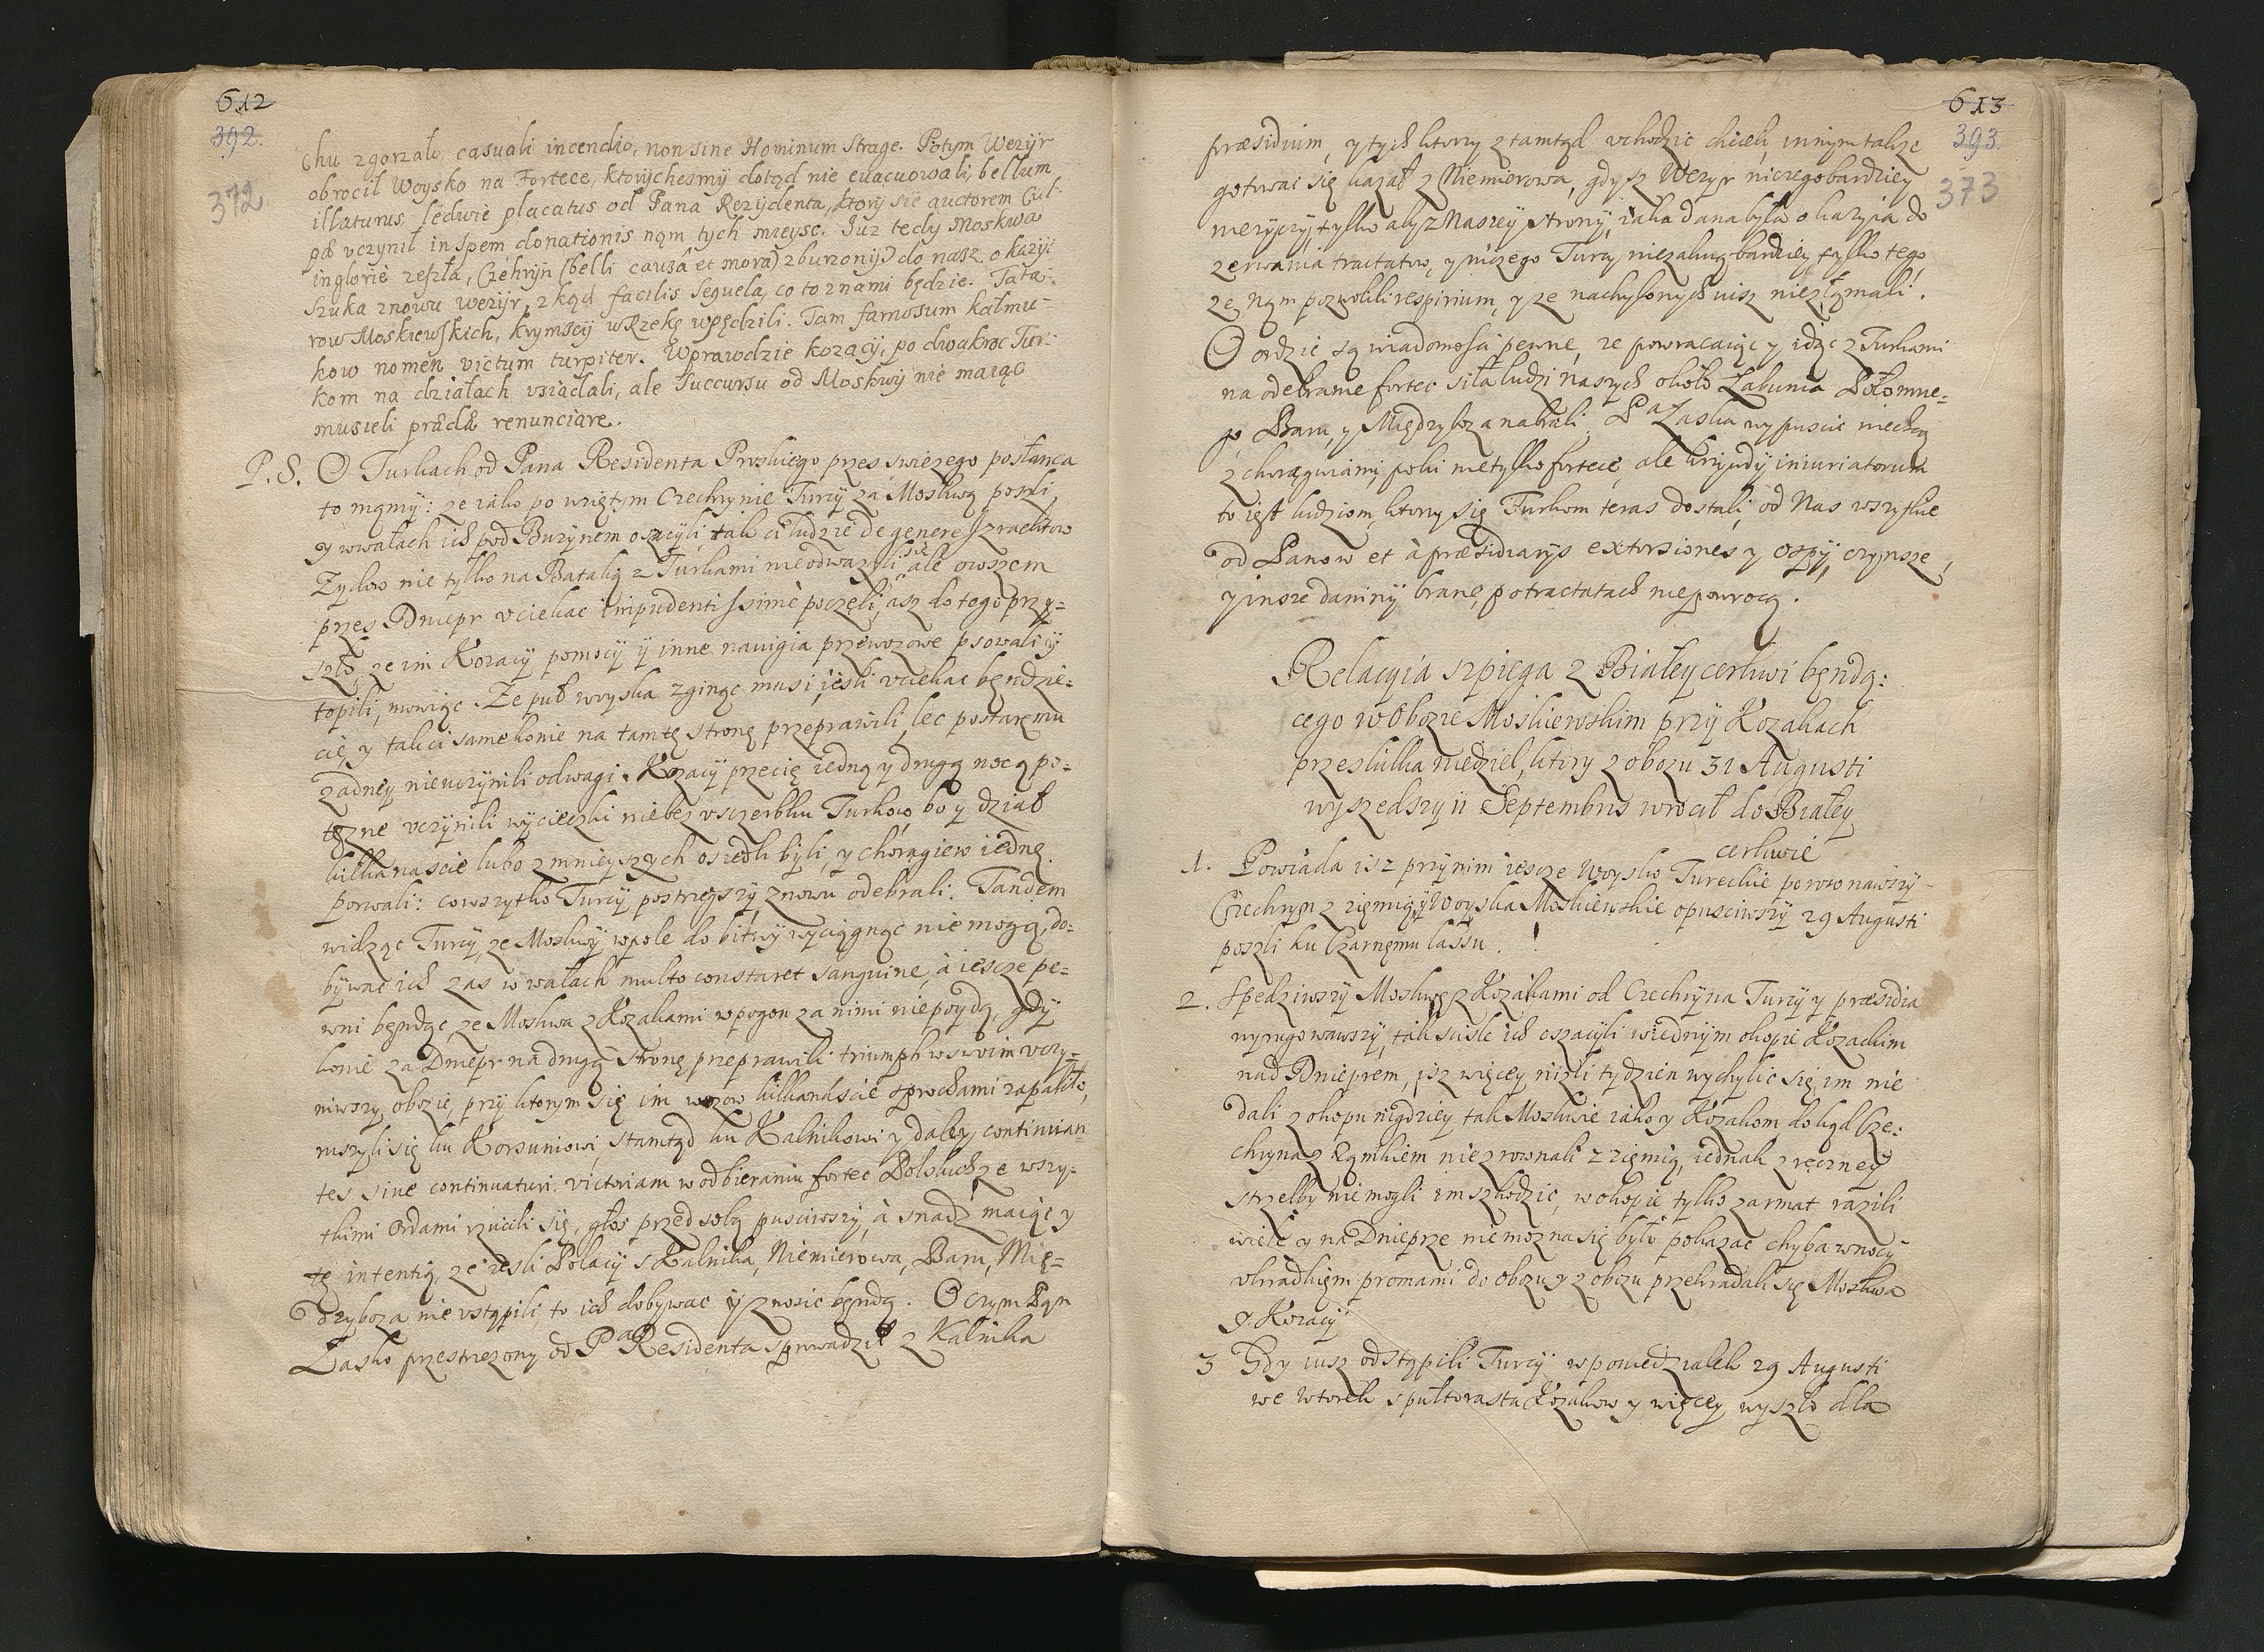 612
392.
372
Chu zgorzało, casuali incendio, non sine Hominum Strage. Potym Wezyr
obrocil Woysko na Fortece, ktorychesmy dotąd nie evacuowali, bellum
illaturus, ledwie placatus od Pana Rezydenta, ktory sie auctorem Cul-
pæ vczynił in Spem donationis nąm tych mieysc. Juz tedy Moskwa
inglorie zeszła, Czehryn (belli causâ et mora) zburzony do nasz okazyi
szuka znowu wezyr, z kąd facilis Sequela, co to z nami będzie. Tata-
row Moskiewskich, krymscy w Rzekę wpędzili. Tam famosum kałmu=
kow nomen victum turpiter. Wprawdzie kozacy, po dwakroc Tur-
kom na działach vsiadali, ale Succursu od Moskwy nie maiąc
musieli prædæ renunciare.
P. S. O Turkach od Pana Residenta Proskiego przes swiezego posłanca
to mąmy: ze iako po wziętym Czechrynie Turcy za Moskwą poszli,
y w wałach ich pod Burynem osaczyli, tak ci ludzie de genere Izraelitow
Zydow nie tylko na Batalią z Turkami nie odwazyli się ale owszem
przes Dniepr vciekac impudentissimè poczęli, asz do tego przy=
szło, ze im Kozacy pomocy y inne nauigia przewozowe psowali y
topili, mowiąc. Ze puł woyska zginąc musi, iesli vciekac będzie=
cie, y tak ci same konie na tamtę stronę przeprawili, lec postaremu
zadney nie vczynili odwagi. Kozacy przecię iedną y drugą nocą po=
tęzne vczynili wycieczki nie bez vsczerbku Turkow, bo y dział
kilkanascie lubo z mnieyszych osiedli byli, y chorągiew iednę
porwali: co wszytko Turcy postrzegszy znowu odebrali. Tandem
widząc Turcy, ze Moskwy w pole do bitwy wyciągnąc nie mogą, do=
bywac ich zas w wałach multo constaret sanguine, à iescze pe=
wni bęndąc, ze Moskwa z Kozakami w pogon za nimi nie poydą, gdy
konie za Dniepr na drugą stronę przeprawili triumph w swoim vczy=
niwszy obozie, przy ktorym się im wozow kilkanascie z prochami zapaliło,
ruszyli się ku Korsuniowi, stamtąd ku Kalnikowi y daley, continuan
tes siue continuaturi victoriam w odbieraniu fortec Polskich ze wszy=
tkimi ordami rzucili się, głos przed sobą pusciwszy, à snadz maiąc y
tę intentią, ze iesli Polacy s Kalnika, Niemierowa, Baru, Mię=
dzyboza nie vstąpili, to ich dobywac y znosic będą. O czym Pąn
Łasko przestrzezony od Pa Residenta sprowadził z Kalnika
613
393.
373
præsidium, y tych ktorzy z tamtąd vchodzic chcieli, innym takze
gotowac się kazał z Niemierowa, gdysz Wezyr niczego bardziey
nie zyczy, tylko aby z Naszey strony, iaka dana była okazyia do
zerwania tractatow, y niczego Turcy nie załuią bardziey tylko tego
ze nąm pozwolili respirium, y ze nachylonych nisz nie złąmali.
O ordzie są wiadomosci pewne, ze powracaiąc y idąc z Turkami
na odebranie fortec siła ludzi naszych około Łabunia Połonne=
go Baru, y Międzyboza nabrali. Pa Łaska wypuscic niechcą
z chorągwiami, poki nie tylko fortece, ale krzywdy iniuriatorum
to iest ludziom, ktorzy się Turkom teras dostali, od Nas wszystkie
od Panow et à præsidiarys extorsiones y ospy, czynsze,
y insze daniny brane, po tractatach nie powrocą.
Relacyia szpiega z Białeycerkwi bęndą:
cego w Obozie Moskiewskim przy Kozakach
przes kilka niedziel, ktory z obozu 31 Augusti
wyszedszy 11 Septembris wrocił do Białey
cerkwie
1. Powiada isz przy nim iescze Woysko Tureckie porownawszy
Czechryn z ziemią, y Woyska Moskiewskie opusciwszy 29 Augusti
poszli ku Czarnęmu lassu.
2. Spedziwszy Moskwę z Kozakami od Czechryna Turcy y præsidia
wyrugowawszy, tak scisle ich oszaczyli w iednym okopie Kozackim
nad Dnieprem, isz więcey nizli tydzien wychylic się im nie
dali z okopu nigdziey tak Moskwie iako y Kozakom dokąd Cze:
chryna z Ząmkiem nie zrownali z ziemią, iednak z ręczney
strzelby nie mogli im szkodzic, w okopie tylko z armat razili
wiele y na Dnieprze nie mozna się było pokazac chyba w nocy
vkradkiem promami do obozu y z obozu przekradali się Moskwa
y Kozacy
3 Gdy iusz odstąpili Turcy w poniedziałek 29 Augusti
we wtorek s pułtorasta Kozakow y więcey wyszło dla